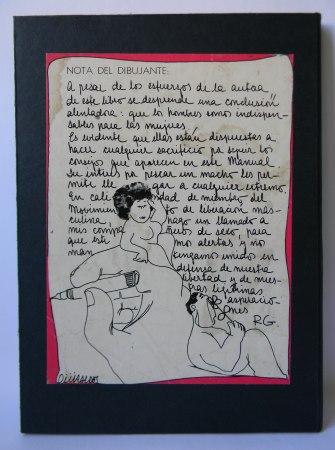 NOTA DEL DIBUJANTE:
A pesar de los esfuerzos de la autora
de este libro se desprende una conclusión
alentadora: que los hombres somos indispen-
sables para las mujeres.
Es evidente que ellas están dispuestas a
hacer cualquier sacrificio por seguir los
consejos que aparecen en este Manual
Su interés por pescar un macho les per-
mite llegar a cualquier extremo.
En calidad de miembro del
Movimiento de liberación mas-
culina, hago un llamado a
mis compañeros de sexo, para
que estemos alertas y nos
mantengamos unidos en
defensa de nuestra
libertad y de nues-
tras legítimas
aspiracio-
nes
R.G.